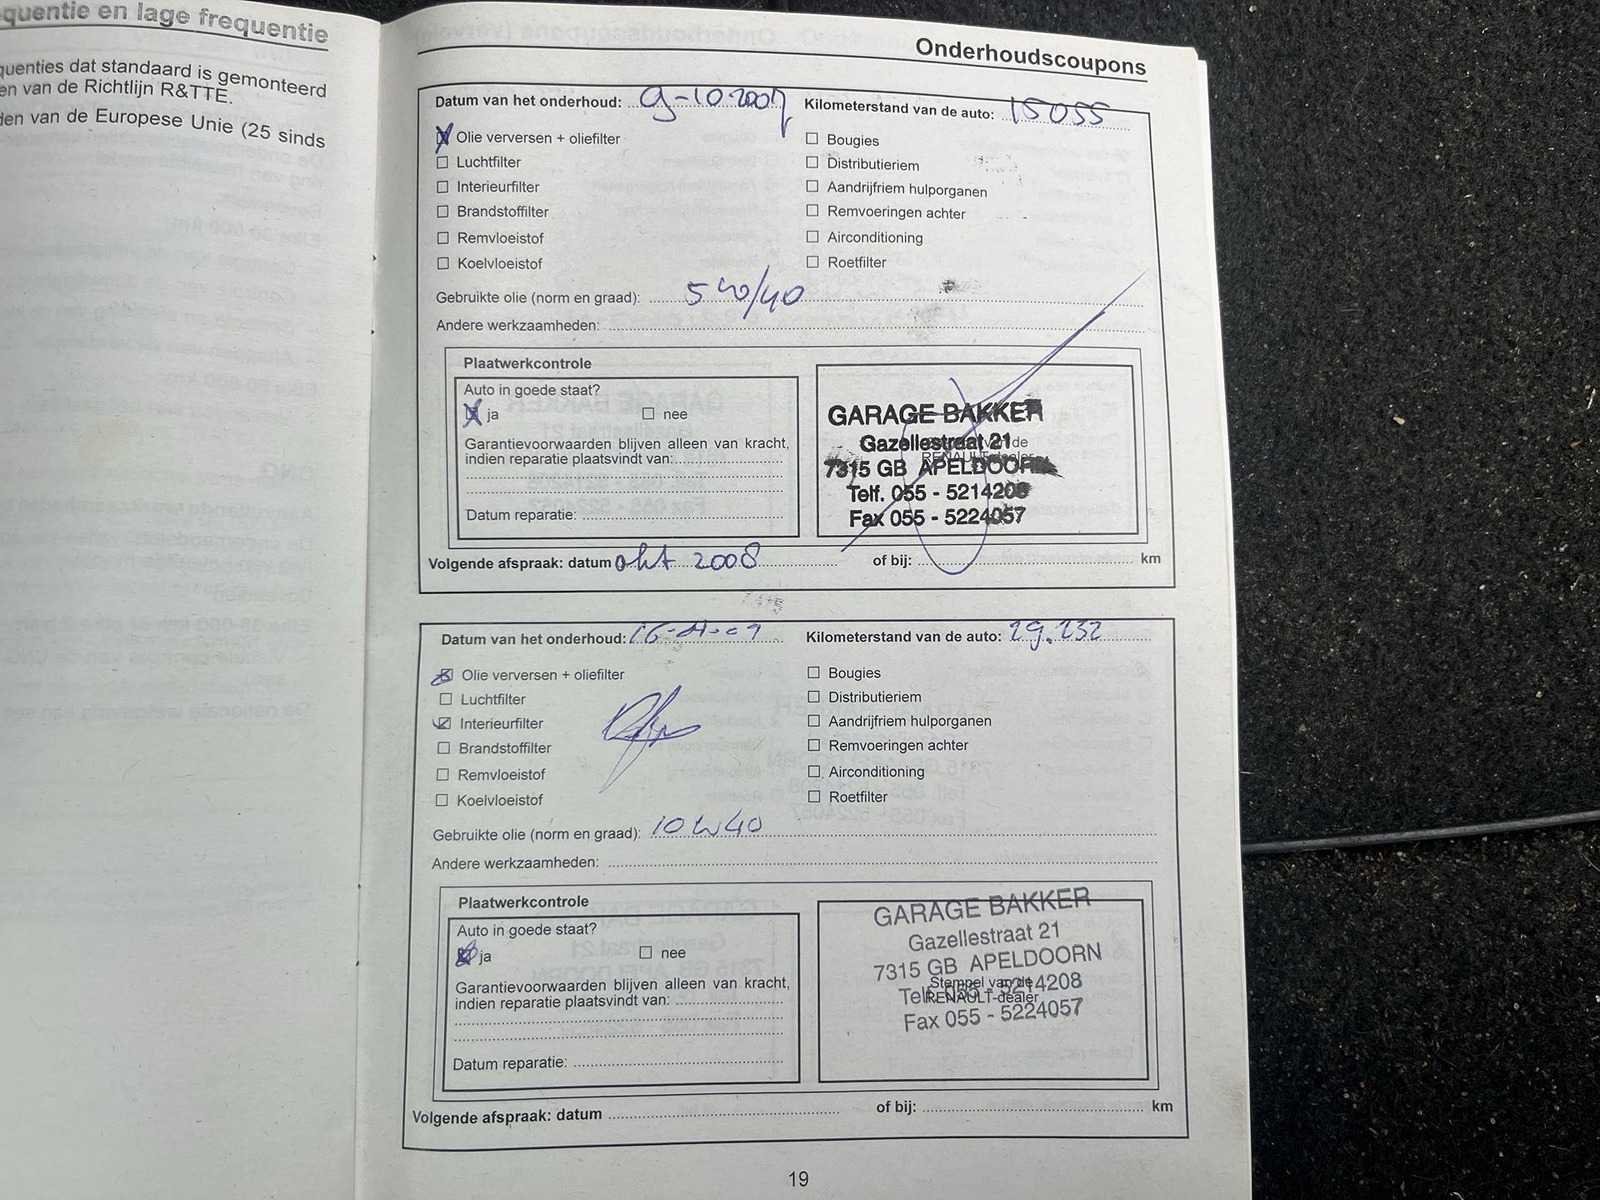 quentie en lage frequentie
quenties dat standaard is gemonteerd
en van de Richtlijn R&TTE.
den van de Europese Unie (25 sinds
Onderhoudscoupons
Datum van het onderhoud: 9-10 2007 Kilometerstand van de auto: 15055
Olie verversen + oliefilter Bougies
Luchtfilter Distributieriem
Interieurfilter Aandrijfriem hulporganen
Brandstoffilter Remvoeringen achter
Remvloeistof Airconditioning
Koelvloeistof Roetfilter
Gebruikte olie (norm en graad): 5w/40
Andere werkzaamheden:
Plaatwerkcontrole
Auto in goede staat?
ja nee
Garantievoorwaarden blijven alleen van kracht,
indien reparatie plaatsvindt van:
Datum reparatie:
GARAGE BAKKER
Gazellestraat 21
7315 GB APELDOORN
Telf. 055 - 5214208
Fax 055 - 5224057
van de
RENAULT-dealer
Volgende afspraak: datum okt 2008 of bij: km
Datum van het onderhoud: Kilometerstand van de auto: 29.232
Olie verversen + oliefilter Bougies
Luchtfilter Distributieriem
Interieurfilter Aandrijfriem hulporganen
Brandstoffilter Remvoeringen achter
Remvloeistof Airconditioning
Koelvloeistof Roetfilter
Gebruikte olie (norm en graad): 10w40
Andere werkzaamheden:
Plaatwerkcontrole
Auto in goede staat?
ja nee
Garantievoorwaarden blijven alleen van kracht,
indien reparatie plaatsvindt van:
Datum reparatie:
GARAGE BAKKER
Gazellestraat 21
7315 GB APELDOORN
Telf. 055 - 5214208
Fax 055 - 5224057
Stempel van de
RENAULT-dealer
Volgende afspraak: datum of bij: km
19